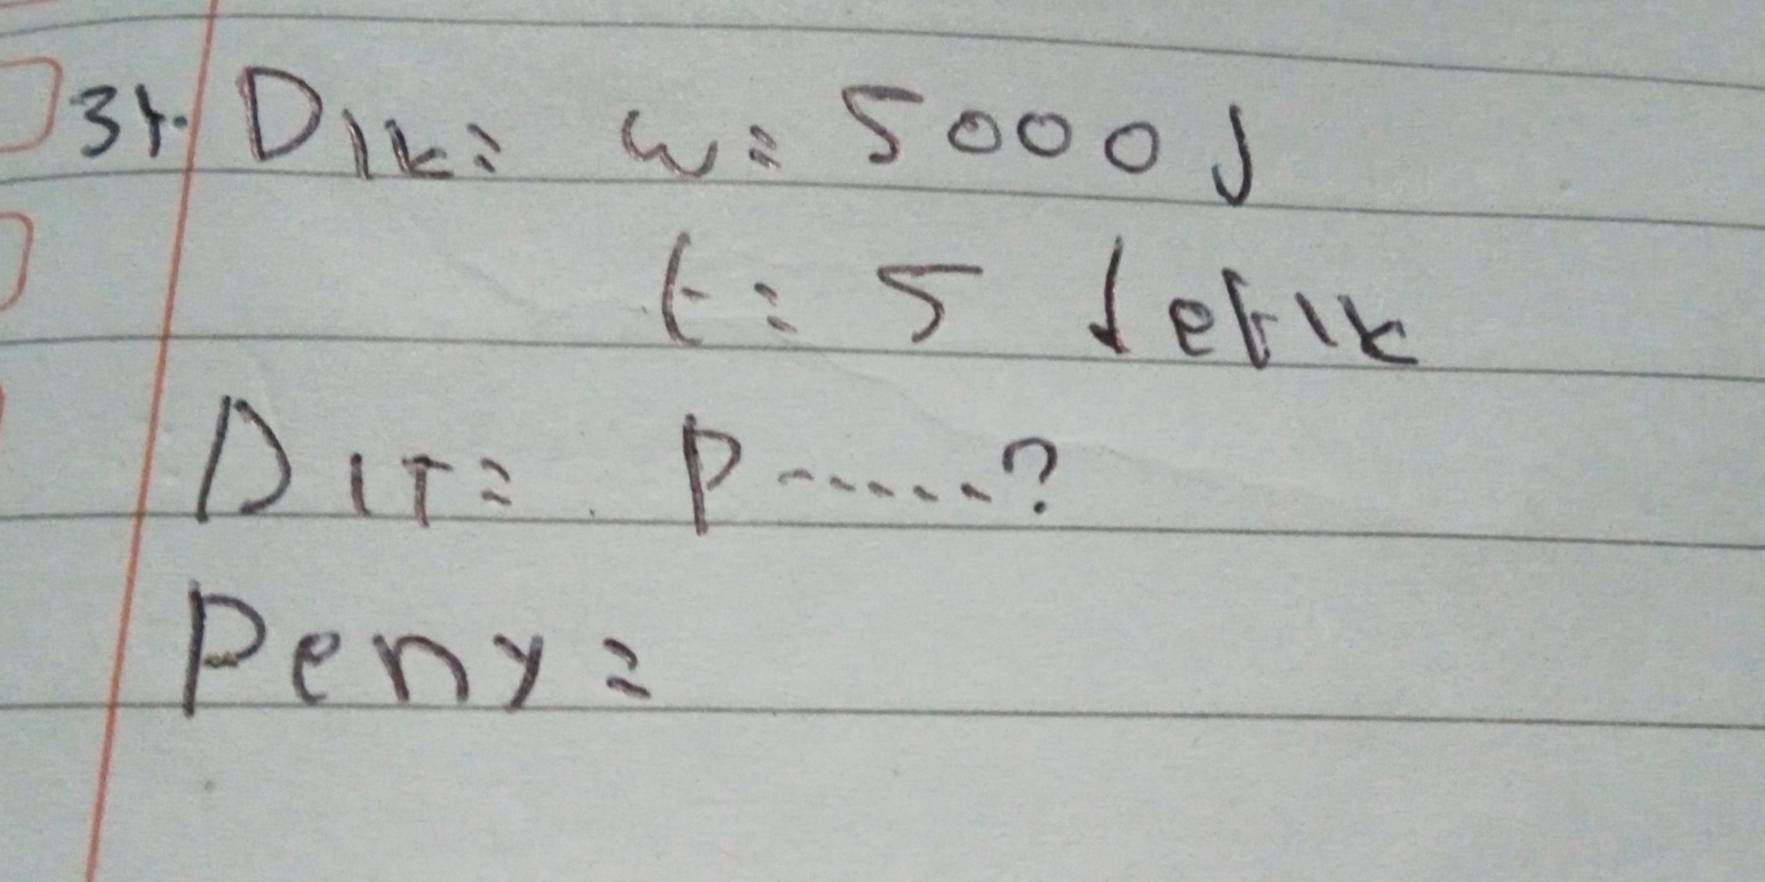 34. Dik: w = 5000 J
t = 5 detik
DIT = P ......?
Peny =